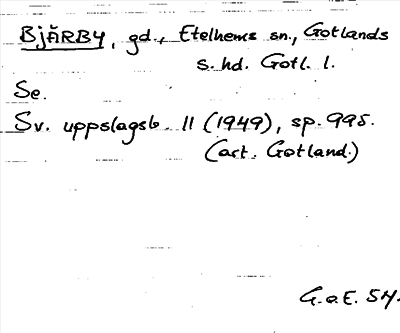 BJÄRBY, gd., Etelhems sn., Gotlands
s. hd. Gotl. l.
Se.
Sv. uppslagsb. 11 (1949), sp. 995.
(art. Gotland.)
G.o.E. 54.